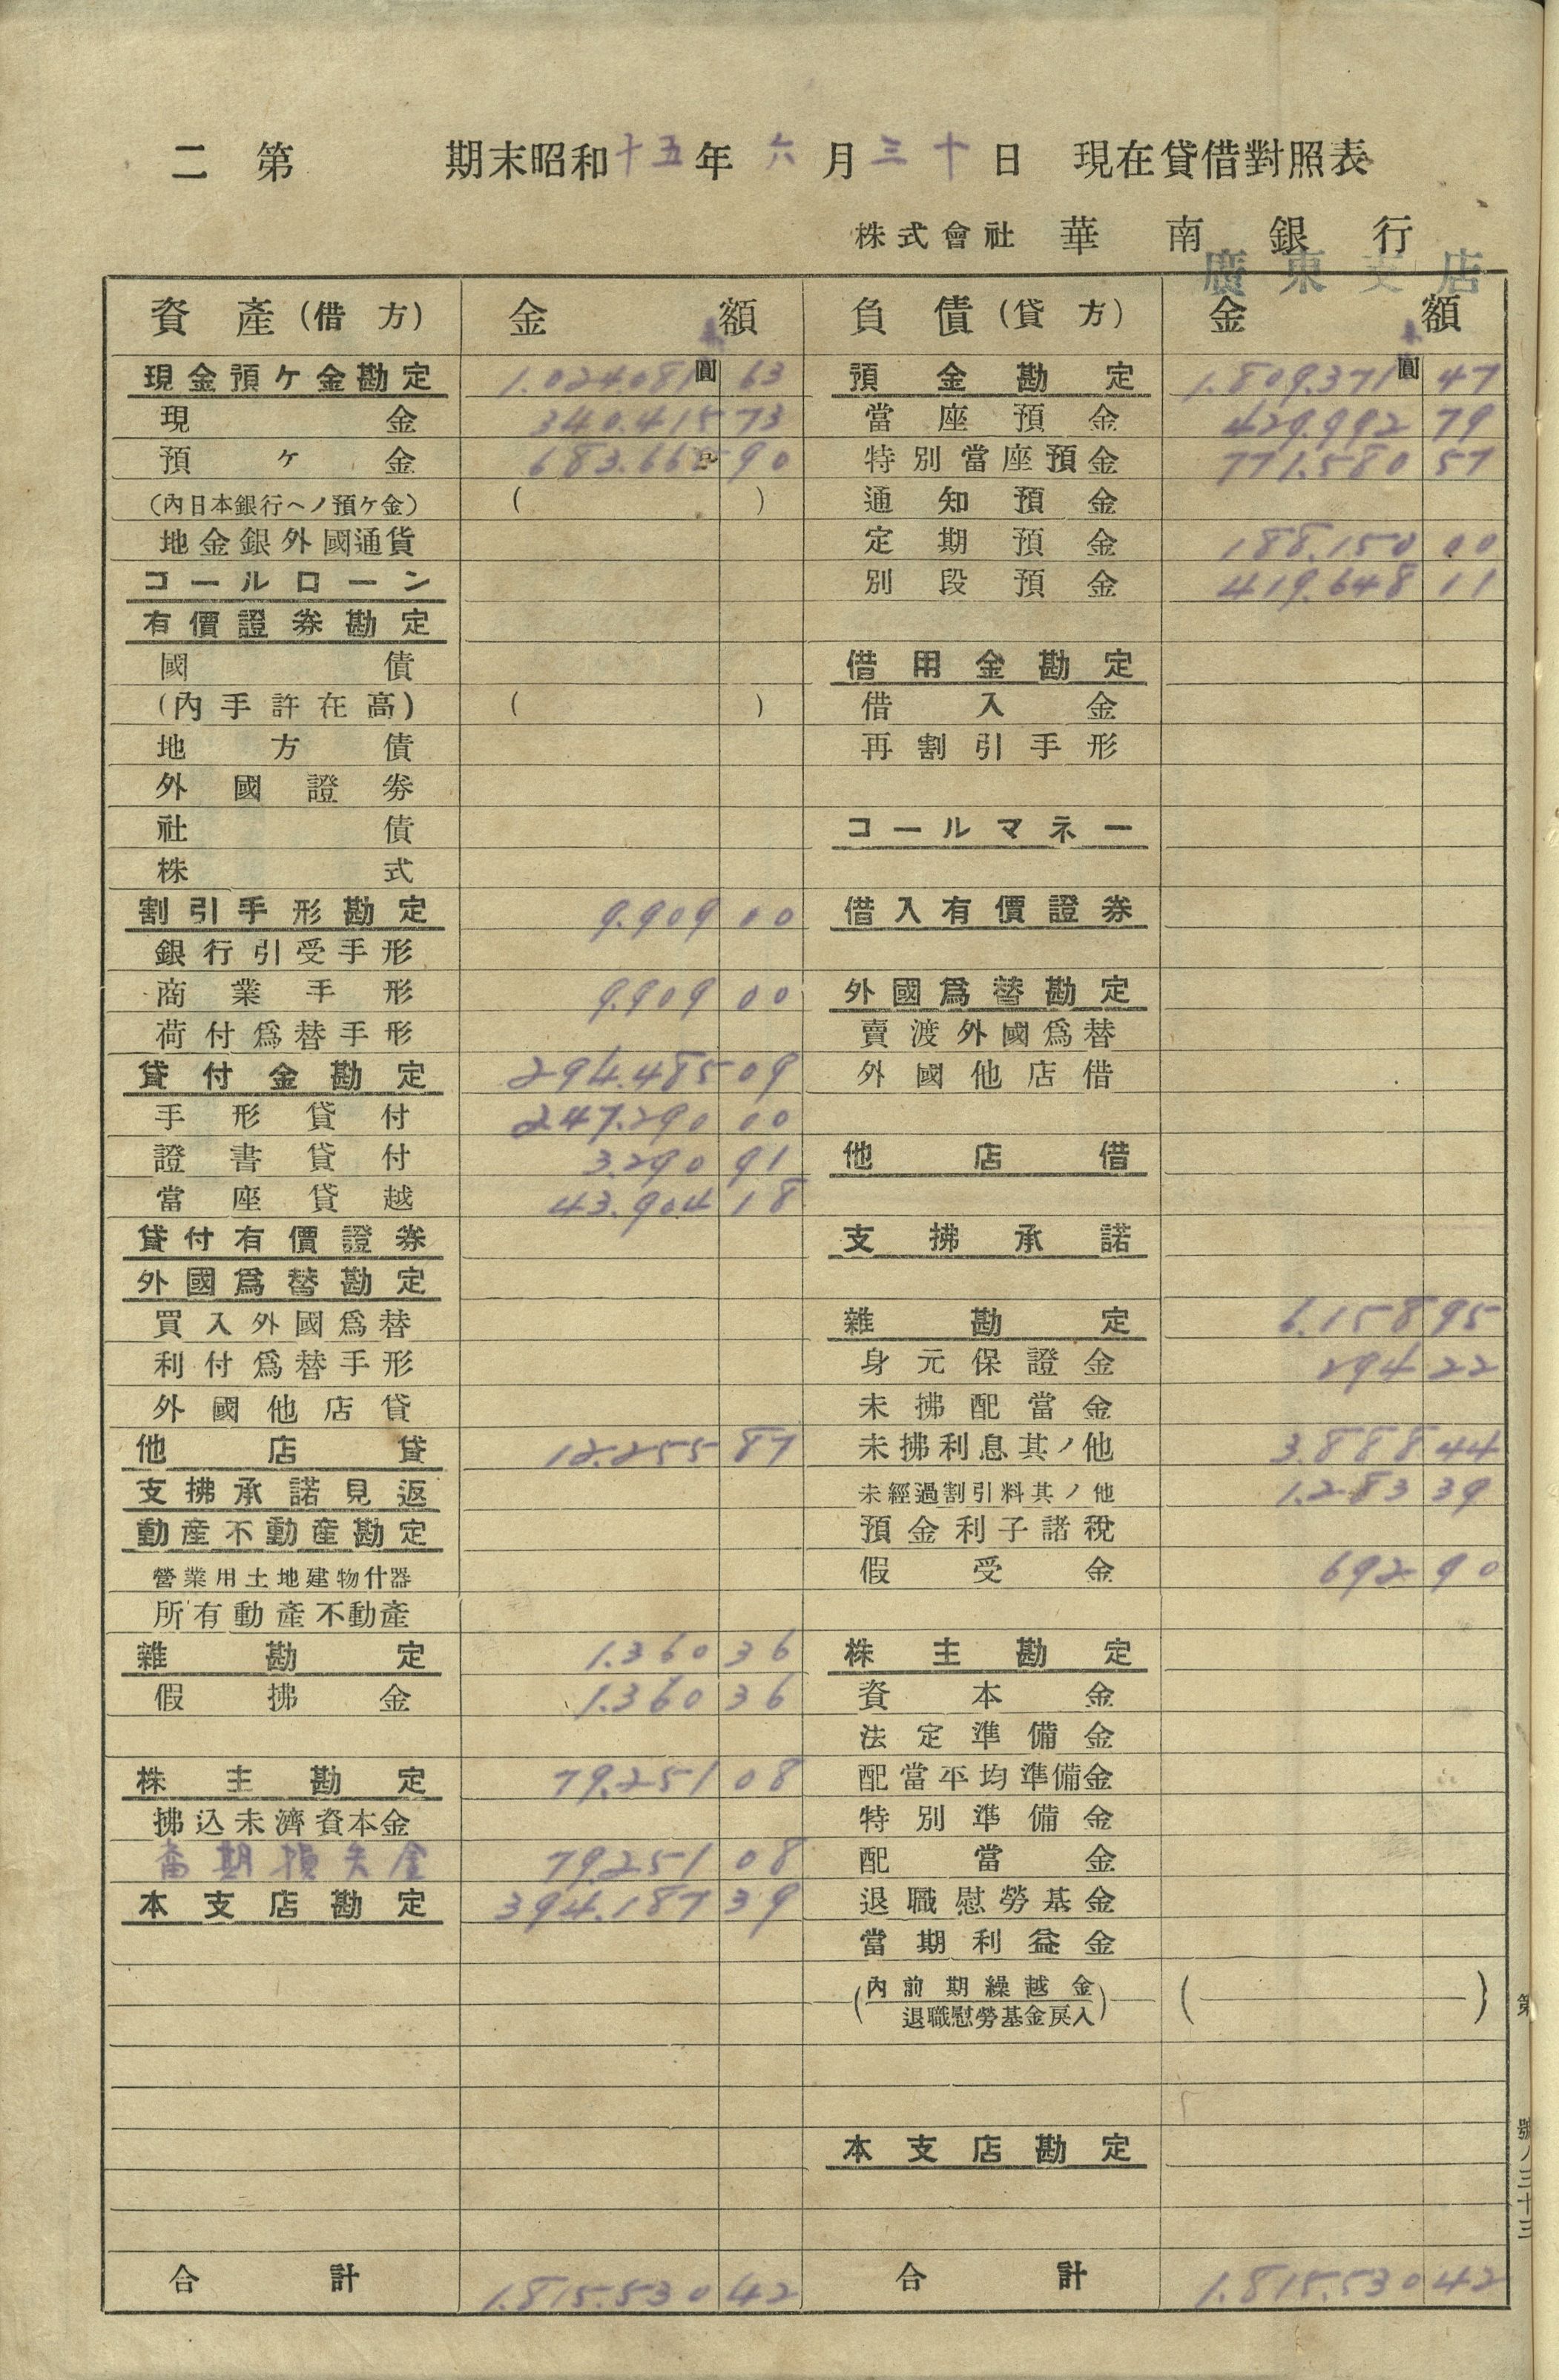 二 第 期末昭和十五年 六 月 三十 日 現在貸借對照表
株式會社 華南銀行
廣東支店
資產(借方) 金額 負債(貸方) 金額
現金預ケ金勘定 1.024.081圓 63 預金勘定 1.809.371圓 47
現金 340.415 73 當座預金 429.992 79
預ケ金 683.665 90 特別當座預金 771.580 57
(內日本銀行ヘノ預ケ金) ( ) 通知預金
地金銀外國通貨 定期預金 188.150 00
コールローン 別段預金 419.648 11
有價證券勘定
國債 借用金勘定
(內手許在高) ( ) 借入金
地方債 再割引手形
外國證券
社債 コールマネー
株式
割引手形勘定 9.909 00 借入有價證券
銀行引受手形
商業手形 9.909 00 外國爲替勘定
荷付爲替手形 賣渡外國爲替
貸付金勘定 294.485 09 外國他店借
手形貸付 247.290 00
證書貸付 3.290 91 他店借
當座貸越 43.904 18
貸付有價證券 支拂承諾
外國爲替勘定
買入外國爲替 雜勘定 6.158 95
利付爲替手形 身元保證金 294 22
外國他店貸 未拂配當金
他店貸 12.255 87 未拂利息其ノ他 3.888 44
支拂承諾見返 未經過割引料其ノ他 1.283 39
動產不動產勘定 預金利子諸稅
營業用土地建物什器 假受金 692 90
所有動產不動產
雜勘定 1.360 36 株主勘定
假拂金 1.360 36 資本金
法定準備金
株主勘定 79.251 08 配當平均準備金
拂込未濟資本金 特別準備金
當期損失金 79.251 08 配當金
本支店勘定 394.187 39 退職慰勞基金
當期利益金
(內前期繰越金 退職慰勞基金戾入) ( )
本支店勘定
合計 1.815.530 42 合計 1.815.530 42
第
號ノ三十三